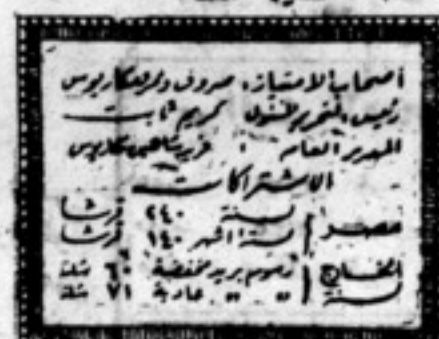 أصحاب الامتياز: صروف ونمر ومكاريوس
رئيس التحرير المسئول كريم ثابت
المدير العام : فريد شاهين مكاريوس
الاشتراكات
مصر { لسنة ٢٤٠ قرشا
لستة أشهر ١٤٠ قرشا
الخارج { رسوم بريد مخفضة ٦٠ شلنا
لسنة { » » عادية ٧١ شلنا